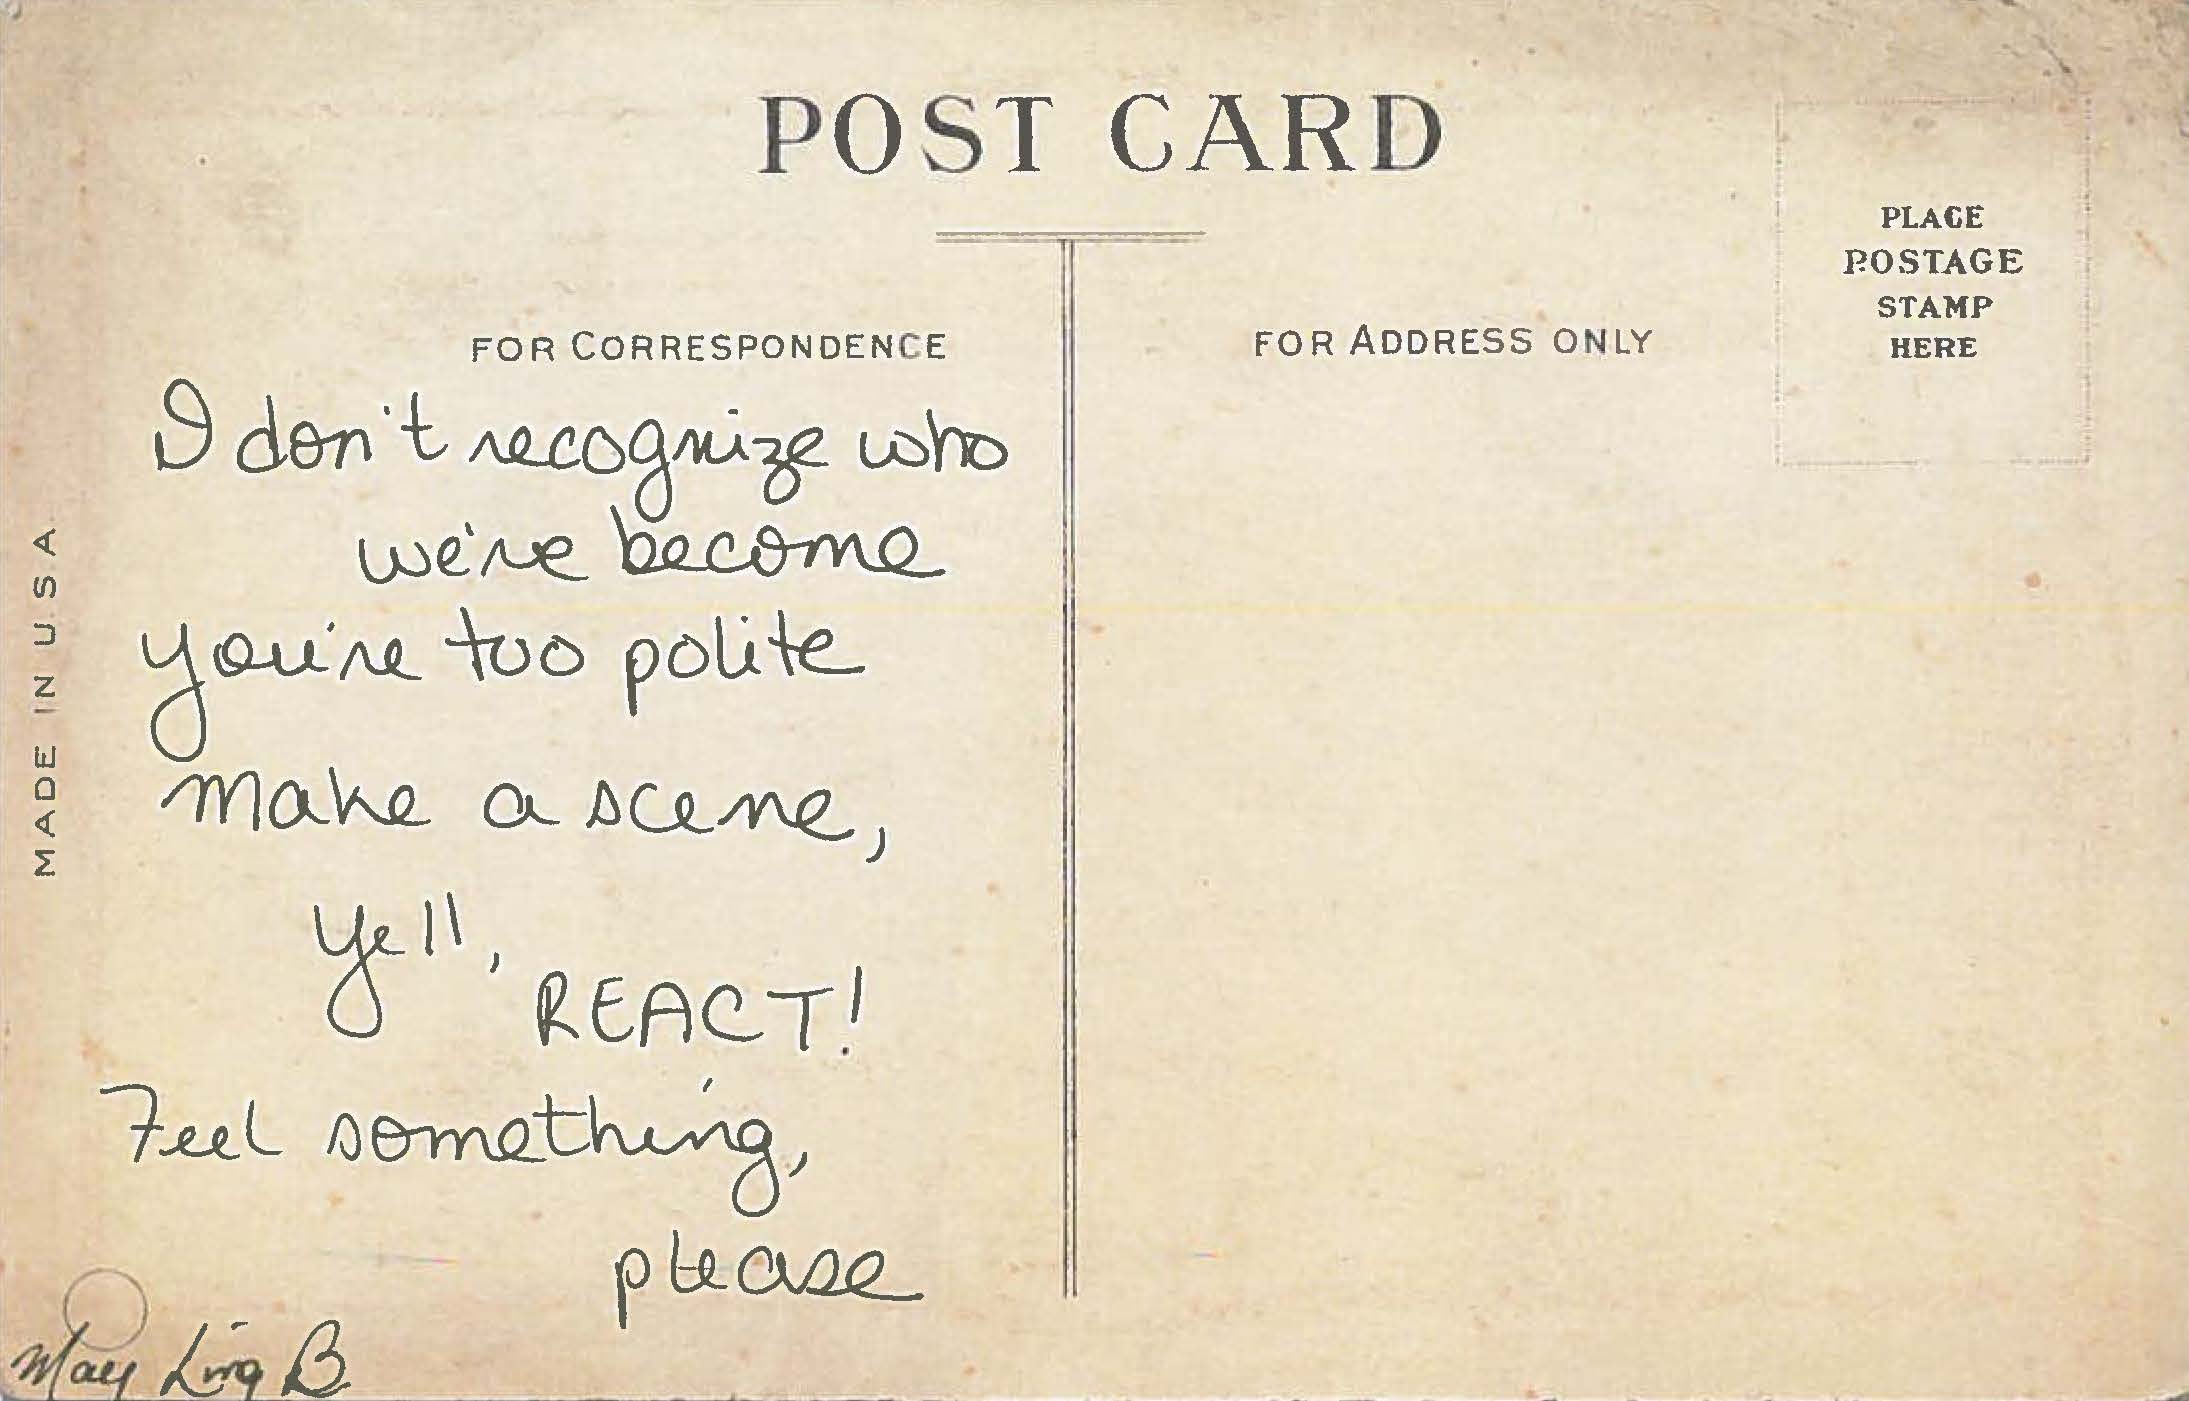 POST CARD
PLACE
POSTAGE
STAMP
HERE
FOR CORRESPONDENCE
FOR ADDRESS ONLY
MADE IN U.S.A
I don't recognize who
we've become
you're too polite
make a scene,
Yell,
REACT!
Feel something,
please
May Ling B